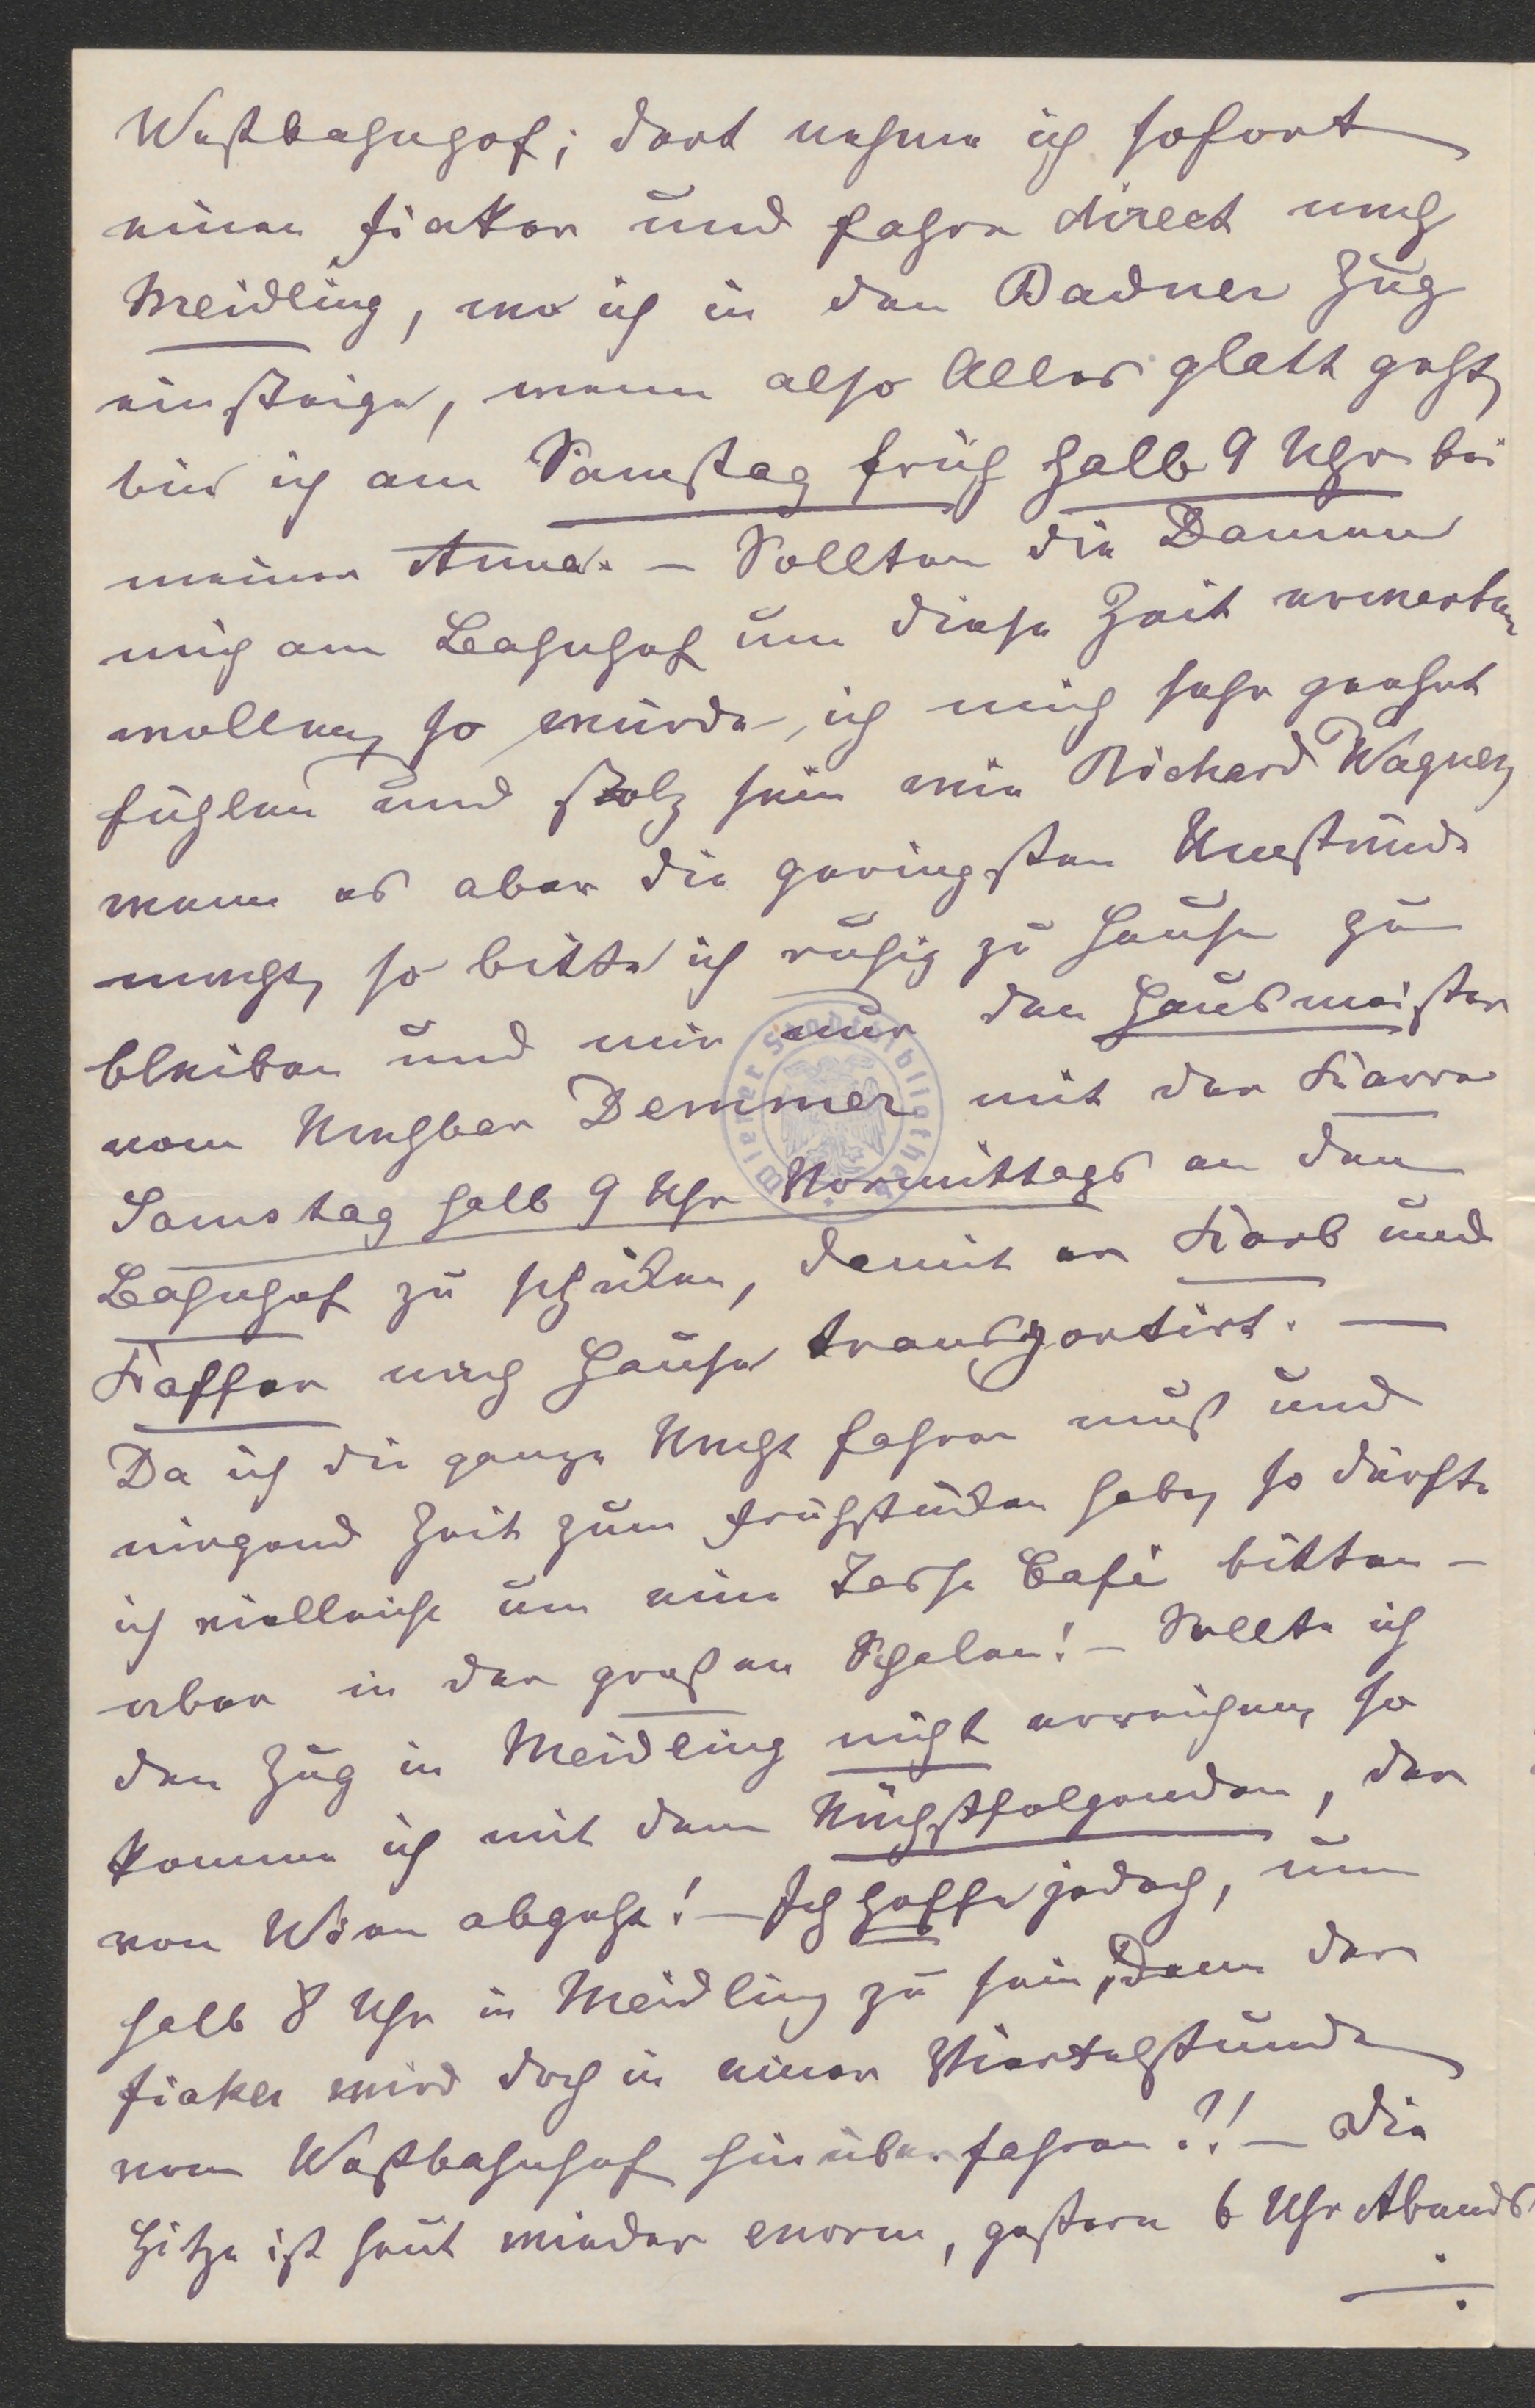 Westbahnhof; dort nehme ich sofort
einen Fiaker und fahre direct nach
Meidling, wo ich in den Badner Zug
einsteige, wenn also Alles glatt geht,
bin ich am Samstag früh halb 9 Uhr bei
meiner Anna. – Sollten die Damen
mich am Bahnhof um diese Zeit erwarten
wollen, so würde ich mich sehr geehrt
fühlen und stolz sein wie Richard Wagner,
wenn es aber die geringsten Umstände
macht, so bitte ich ruhig zu Hause zu
bleiben und mir nur den Hausmeister
vom Nachbar Demmer mit der Karre
Samstag halb 9 Uhr Vormittags an den
Bahnhof zu schicken, damit er Korb und
Koffer nach Hause transportirt. —
Da ich die ganze Nacht fahren muß und
nirgend Zeit zum Frühstücken habe, so dürfte
ich vielleicht um eine Tasse Café bitten –
aber in der großen Schalen! – Sollte ich
den Zug in Meidling nicht erreichen, so
komme ich mit dem Nächstfolgenden, der
von Wien abgeht! – Ich hoffe jedoch, um
halb 8 Uhr in Meidling zu sein, denn der
Fiaker wird doch in einer Viertelstunde
vom Westbahnhof hinüberfahren?! – Die
Hitze ist heut wieder enorm, gestern 6 Uhr Abends
Wiener Stadtbibliothek